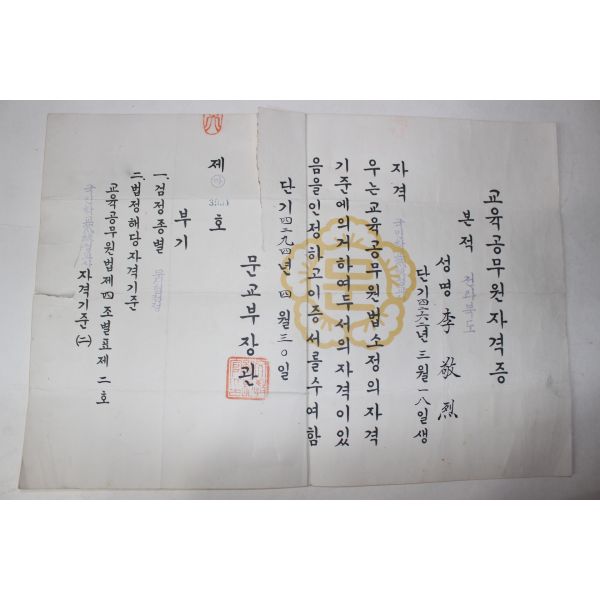 교육공무원자격증
본적 전라북도
성명 李敬烈
단기四二六 年 三월一八일생
자격
우는교육공무원법소정의자격
기준에의거하여두서의자격이있
음을인정하고이증서를수여함
단기四二九四年 四월三〇일
문교부장관
제 호
부기
一. 검정종별
二. 법정해당자격기준
교육공무원법제四조별표제二호
자격기준(二)